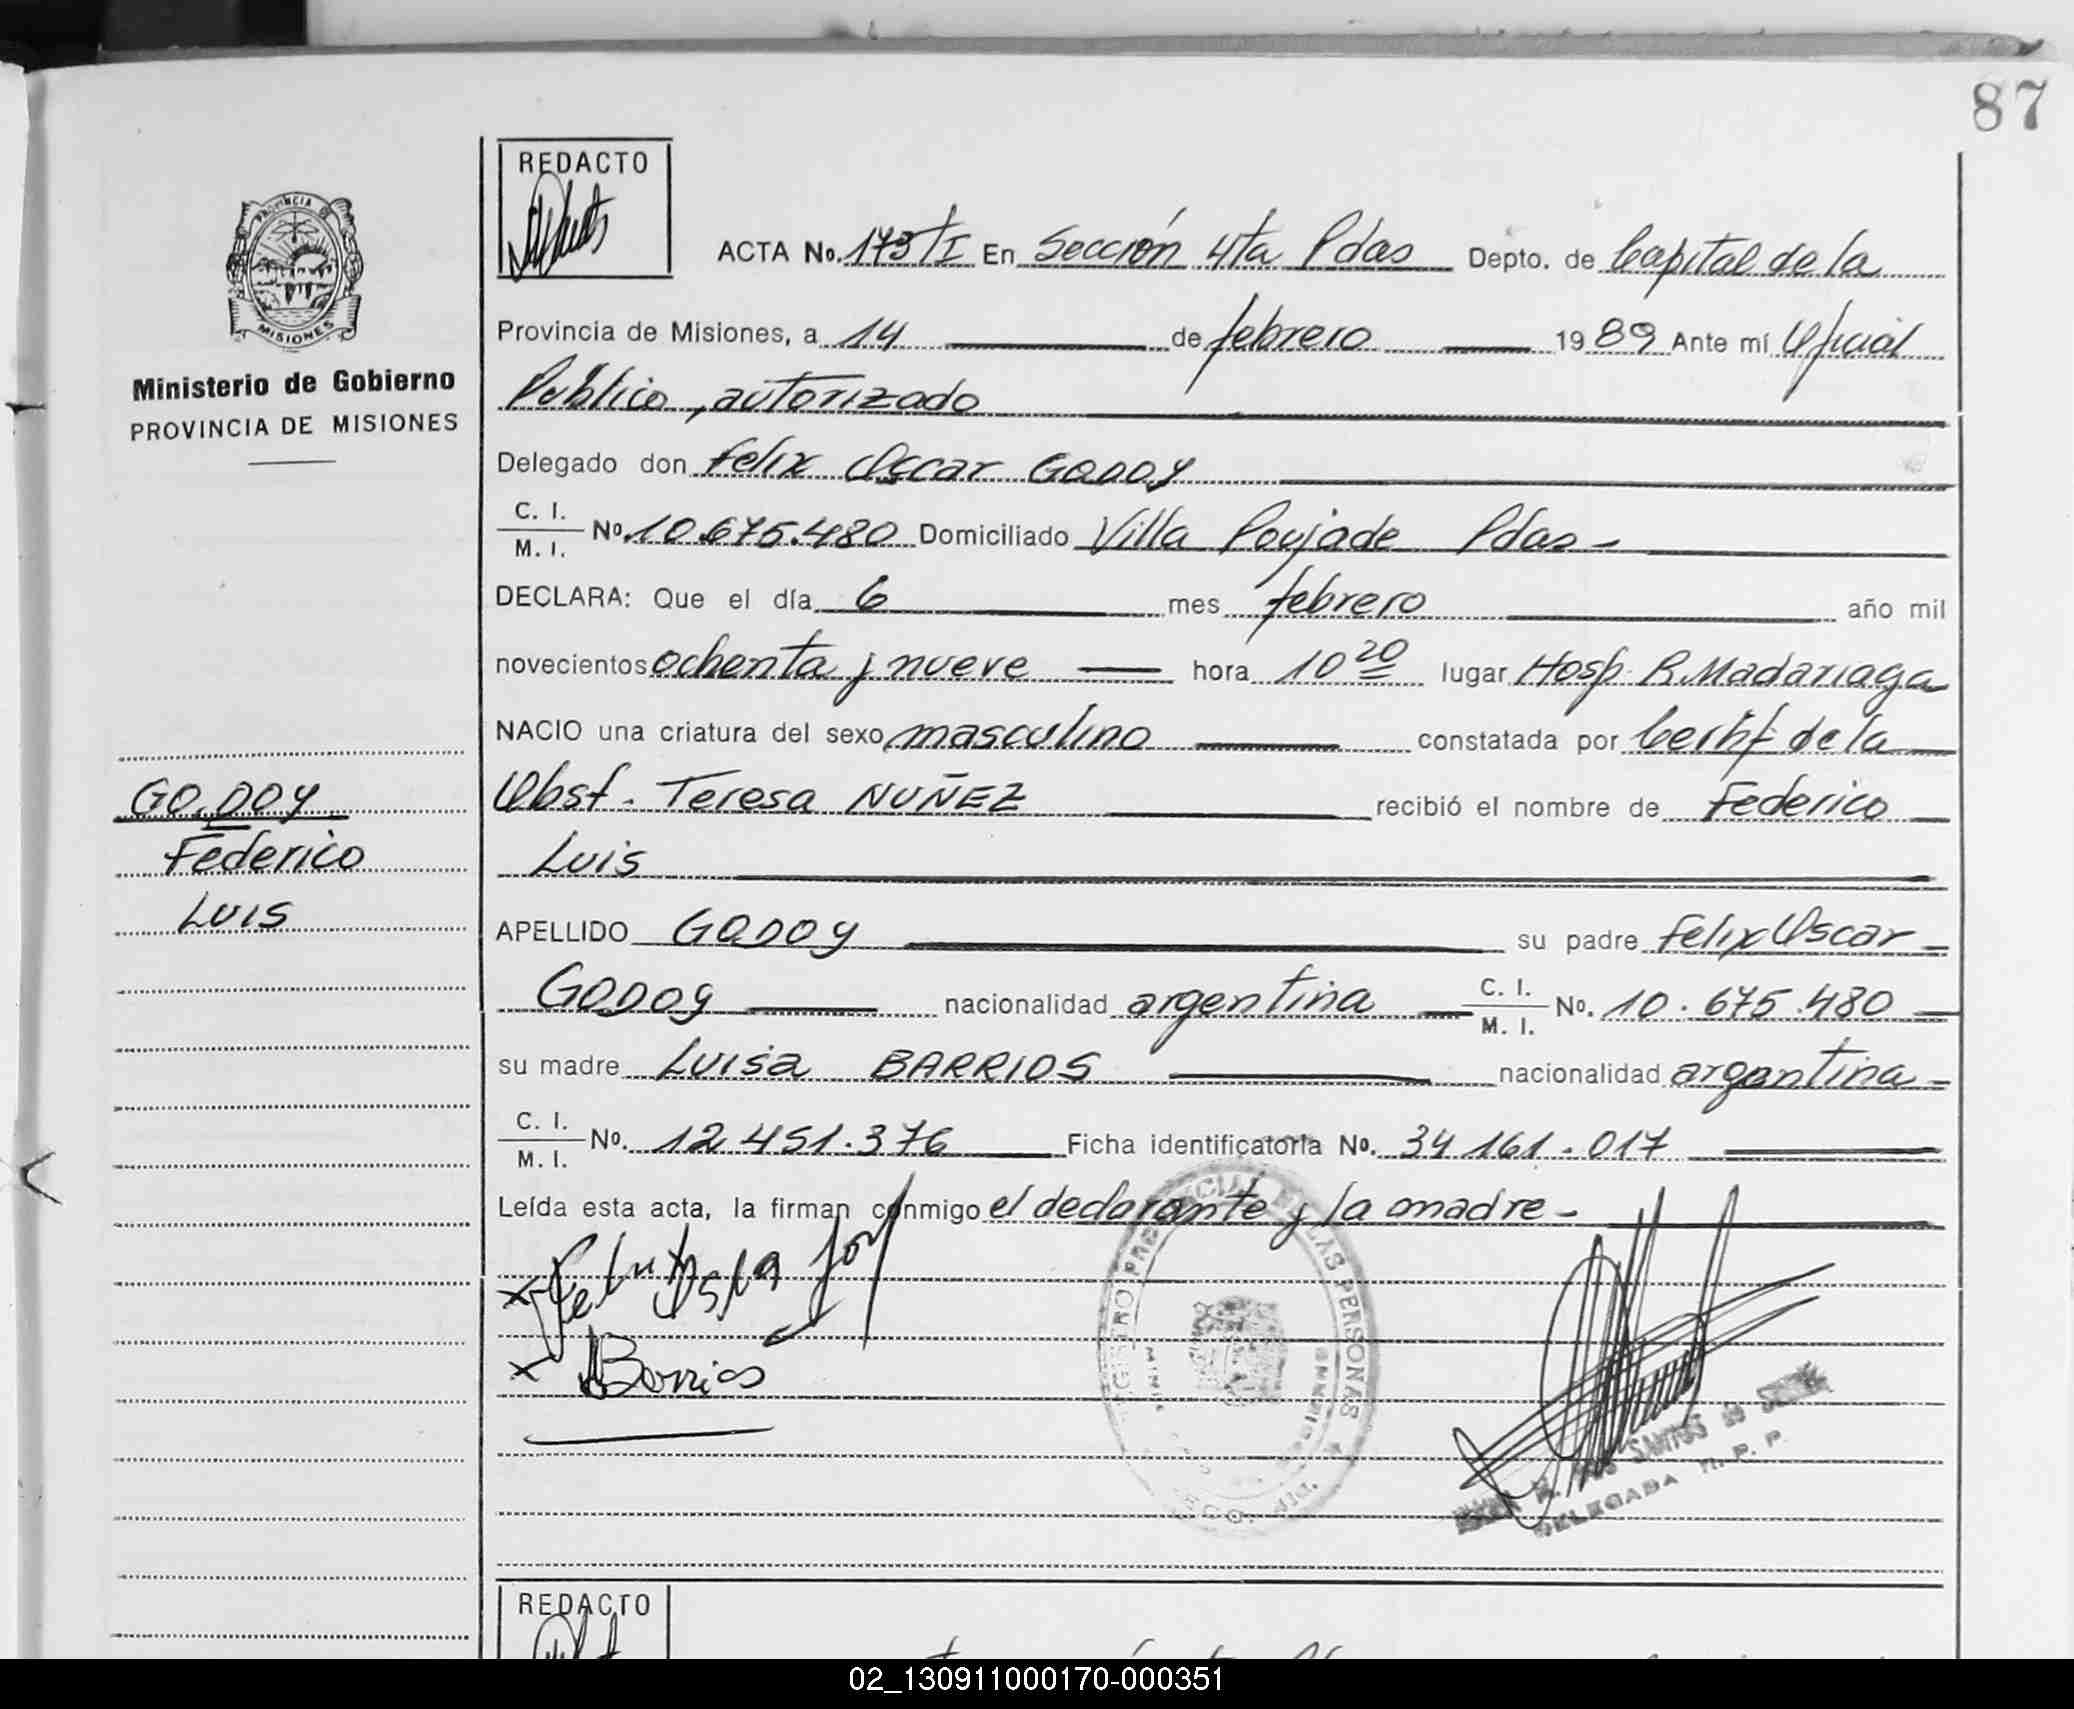 87
REDACTO
ACTA No. 173 tI En Sección 4ta Pdas Depto. de Capital de la
PROVINCIA DE
MISIONES
Provincia de Misiones, a 14 de febrero 1989 Ante mí Oficial
Ministerio de Gobierno
PROVINCIA DE MISIONES
Público, autorizado
Delegado don Felix Oscar GODOY
C. I.
M. I. No. 10.675.480 Domiciliado Villa Poujade Pdas-
DECLARA: Que el día 6 mes febrero año mil
novecientos ochenta y nueve hora 10 20 lugar Hosp. R. Madariaga
NACIO una criatura del sexo masculino constatada por Certif de la
Obst. Teresa NUÑEZ recibió el nombre de Federico
GODOY
Federico
Luis
Luis
APELLIDO GODOY su padre Felix Oscar
GODOY nacionalidad argentina C. I.
M. I. No. 10.675.480
su madre Luisa BARRIOS nacionalidad argentina-
C. I.
M. I. No. 12.451.376 Ficha identificatoria No. 34 161.017
Leída esta acta, la firman conmigo el declarante y la madre-
x
x Barrios
DE LAS PERSONAS
SANTOS DE
DELEGADA R. P. P.
REDACTO
02_130911000170-000351